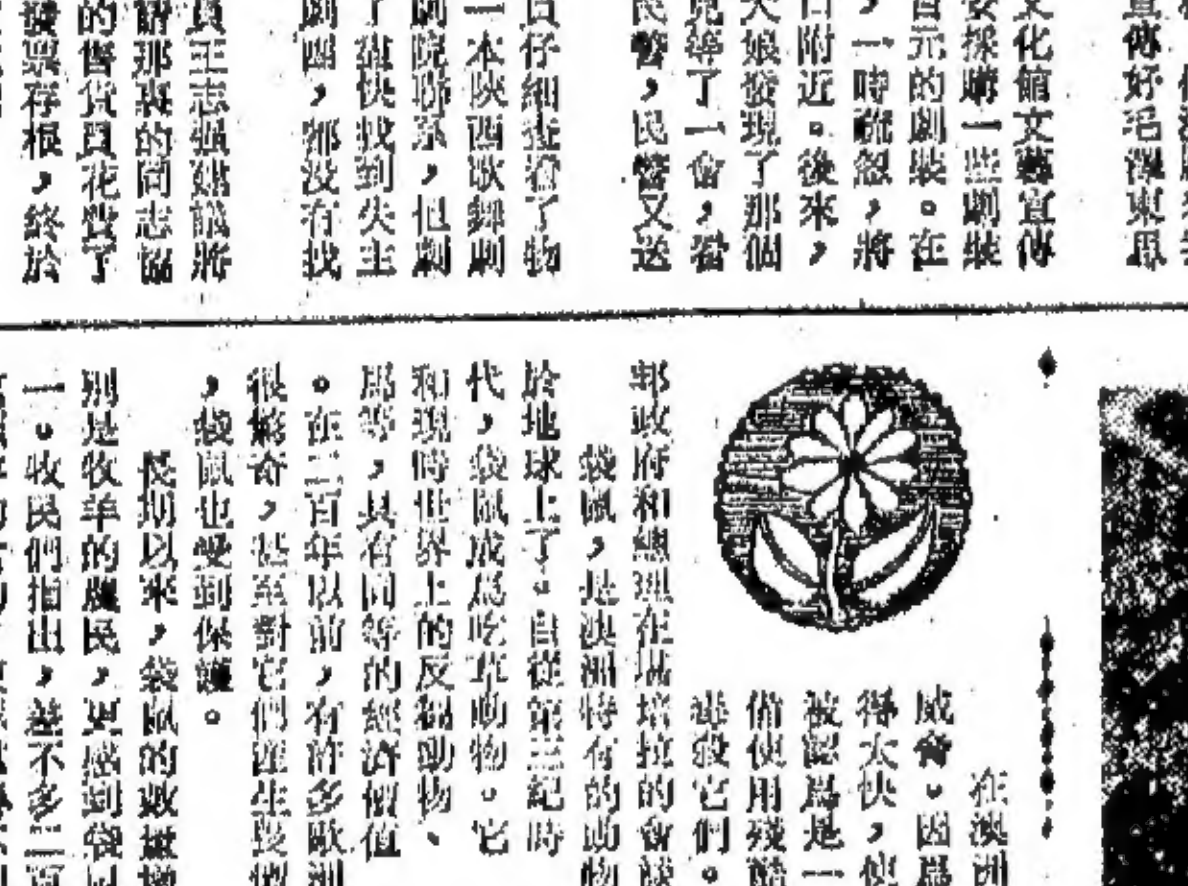 宣傳好毛澤東思
文化館文藝宣傳
安採購一些劇裝
百元的劇裝。在
，一時疏忽，將
附近。後來，
大娘發現了那個
兒等了一會，看
民警，民警又送
仔細查看了物
一本陝西歌舞劇
劇院聯系，他劇
了儘快找到失主
劇團，都没有找
員王志强建議將
請那裏的同志協
的售貨員花費了
發票存根，終於
在澳洲
威脅。因爲
得太快，使
被認爲是一
備使用殘酷
毒殺它們。
邦政府和總理在堪培拉的會談
袋鼠，是澳洲特有的動物
於地球上了。自從第三紀時
代，袋鼠成爲吃草動物。它
和現時世界上的反芻動物、
馬等，具有同等的經濟價值
。在二百年以前，有許多歐洲
很驚奇，甚至對它們產生畏懼
，袋鼠也受到保護。
長期以來，袋鼠的數量增
別是牧羊的農民，更感到袋鼠
一。牧民們指出，差不多二百